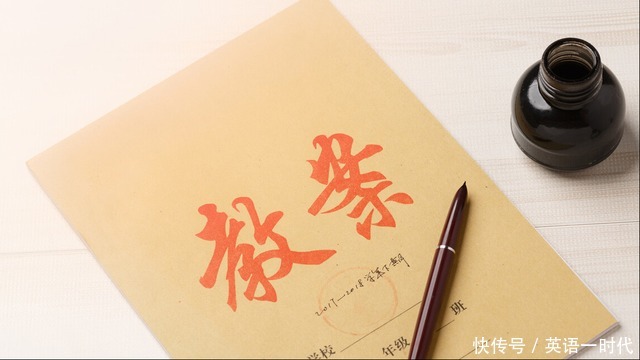 教案
2017—2018学年下学期
学校
年级 班
快传号 / 英语一时代